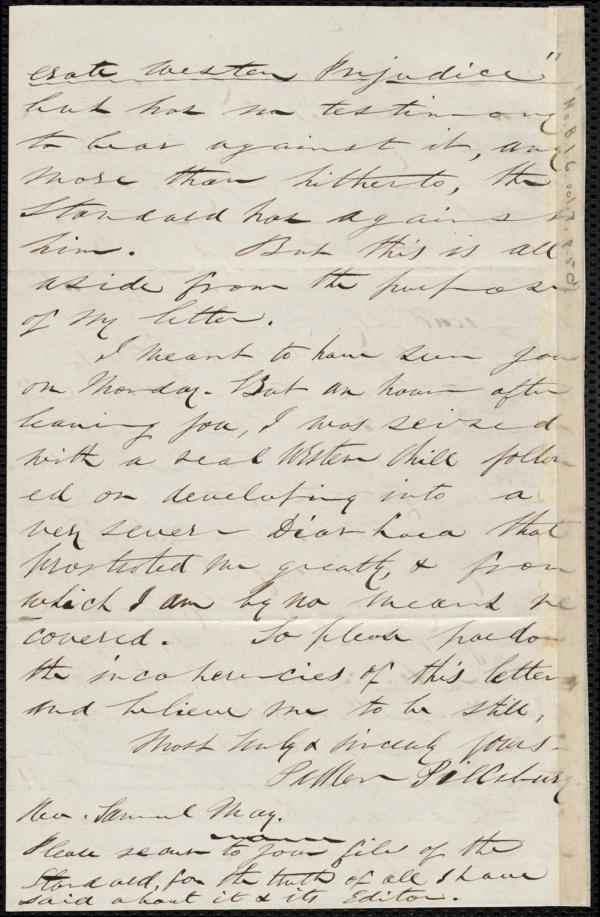 erate Western Prejudice"
but has no testimony
to bear against it, any
more than hitherto, the
Standard has against
him. But this is all
aside from the purpose
of my letter.
I meant to have seen you
on Monday. But an hour after
leaving you, I was seized
with a real Western chill follow
ed on developing into a
very severe Diarhoea that
prostrated me greatly, & from
which I am by no means re
covered. So please pardon
the incoherencies of this letter
and believe me to be still,
Most truly & sincerely yours
Parker Pillsbury
Rev. Samuel May.
Please to your file of the
Standard, for the truth of all I have
said about it & its Editor.